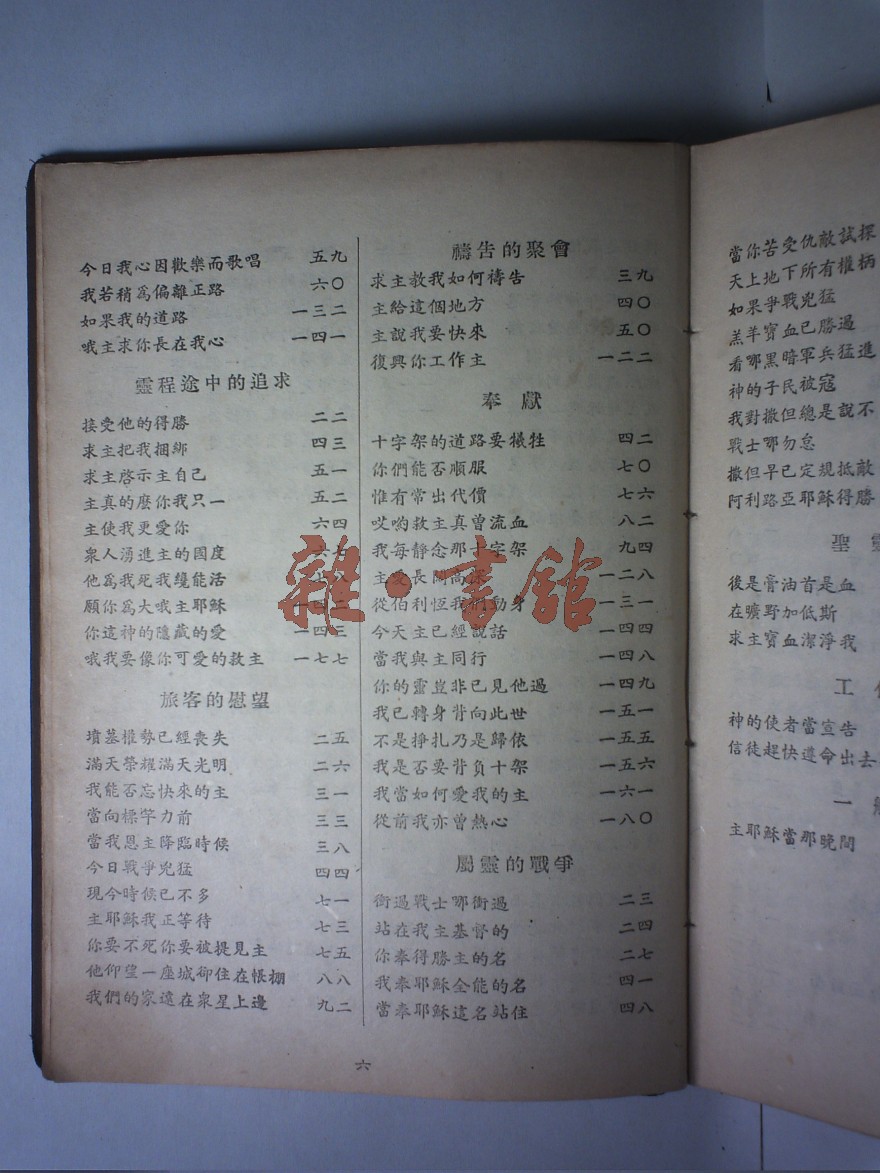 今日我心因歡樂而歌唱 五九
我若稍爲偏離正路 六〇
如果我的道路 一三二
哦主求你長在我心 一四一
靈程途中的追求
接受他的得勝 二二
求主把我捆綁 四三
求主啓示主自己 五一
主真的麼你我只一 五二
主使我更愛你 六四
衆人湧進主的國度 六七
他爲我死我纔能活
願你爲大哦主耶穌
你這神的隱藏的愛 一四三
哦我要像你可愛的救主 一七七
旅客的慰望
墳墓權勢已經喪失 二五
滿天榮耀滿天光明 二六
我能否忘快來的主 三一
當向標竿力前 三三
當我恩主降臨時候 三八
今日戰爭兇猛 四四
現今時候已不多 七一
主耶穌我正等待 七三
你要不死你要被提見主 七五
他仰望一座城卻住在帳棚 八八
我們的家遠在衆星上邊 九二
禱告的聚會
求主教我如何禱告 三九
主給這個地方 四〇
主說我要快來 五〇
復興你工作主 一二二
奉獻
十字架的道路要犧牲 四二
你們能否順服 七〇
惟有常出代價 七六
哎喲救主真曾流血 八二
我每靜念那十字架 九四
主愛長闊高深 一二八
從伯利恆我們動身 一三一
今天主已經說話 一四四
當我與主同行 一四八
你的靈豈非已見他過 一四九
我已轉身背向此世 一五一
不是掙扎乃是歸依 一五五
我是否要背負十架 一五六
我當如何愛我的主 一六一
從前我亦曾熱心 一八〇
屬靈的戰爭
衝過戰士哪衝過 二三
站在我主基督的 二四
你奉得勝主的名 二七
我奉耶穌全能的名 四一
當奉耶穌這名站住 四八
六
當你苦受仇敵試探
天上地下所有權柄
如果爭戰兇猛
羔羊寶血已勝過
看哪黑暗軍兵猛進
神的子民被寇
我對撒但總是說不
戰士哪勿怠
撒但早已定規抵敵
阿利路亞耶穌得勝
聖靈
後是膏油首是血
在曠野加低斯
求主寶血潔淨我
工
神的使者當宣告
信徒趕快遵命出去
一
主耶穌當那晚間
雜·書館